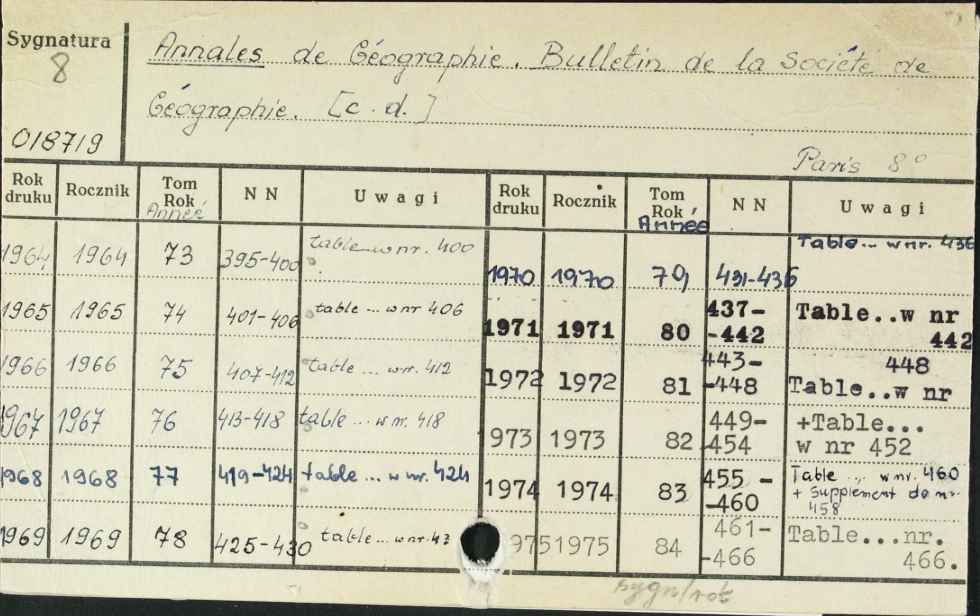 Sygnatura
8
018719
Annales de Géographie. Bulletin de la Société de
Géographie. [c. d.]
Paris 8°
Rok druku Rocznik Tom Rok Année N N Uwagi
1964 1964 73 395-400 table...w nr. 400
1965 1965 74 401-406 table...w nr 406
1966 1966 75 407-412 table...w nr. 412
1967 1967 76 413-418 table...w nr. 418
1968 1968 77 419-424 table...w nr. 424
1969 1969 78 425-430 table...w nr. 43
Rok druku Rocznik Tom Rok Année N N Uwagi
1970 1970 79 431-436 Table...w nr. 436
1971 1971 80 437-
-442 Table..w nr
442
1972 1972 81 443-
-448 448
Table..w nr
973 1973 82 449-
454 +Table...
w nr 452
1974 1974 83 455 -
-460 Table ... w nr. 460
+ Supplement do nr.
458
975 1975 84 461-
-466 Table...nr.
466.
sygn/rok